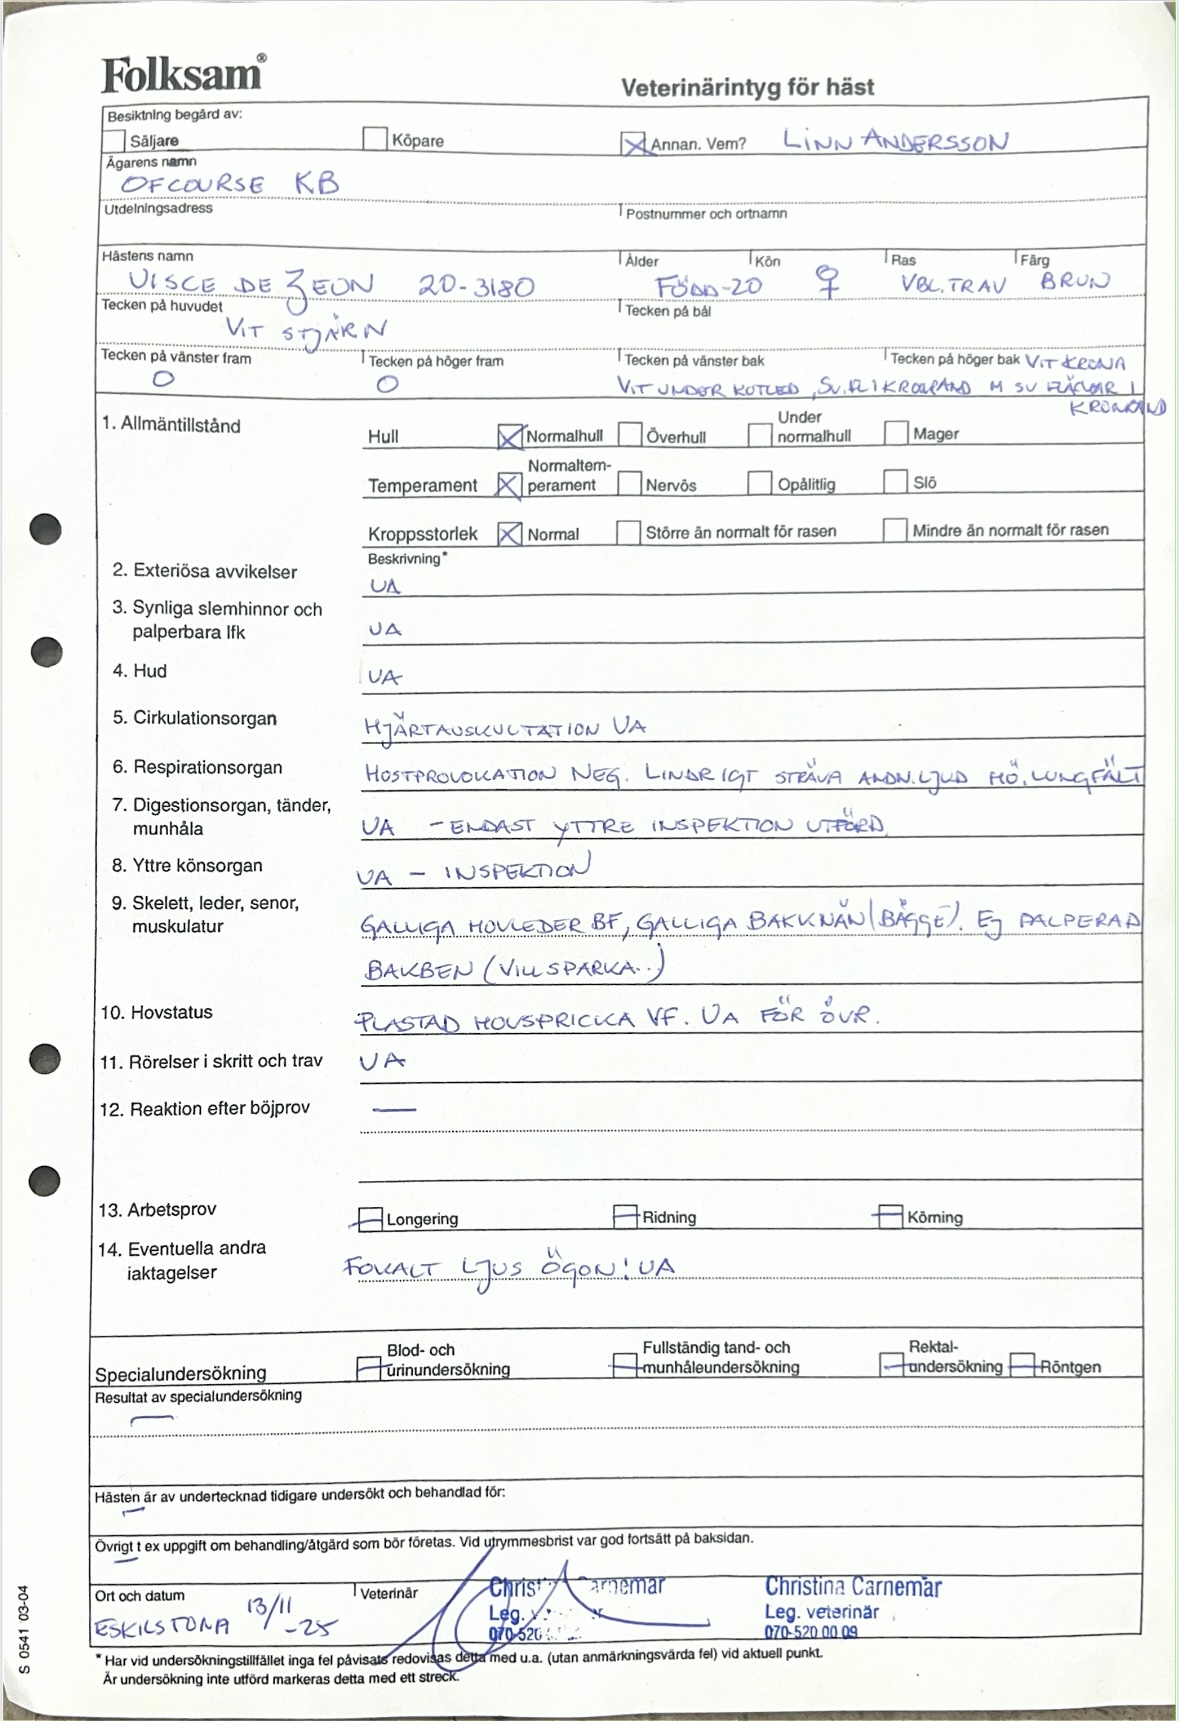 Folksam®
Veterinärintyg för häst
Besiktning begärd av:
Säljare Köpare Annan. Vem? LINN ANDERSSON
Ägarens namn
OFCOURSE KB
Utdelningsadress Postnummer och ortnamn
Hästens namn Ålder Kön Ras Färg
VISCE DE ZEON 20-3180 FÖDD-20 ♀ VBL.TRAV BRUN
Tecken på huvudet Tecken på bål
VIT STJÄRN
Tecken på vänster fram Tecken på höger fram Tecken på vänster bak Tecken på höger bak VIT KRONA
O O VIT UNDER KOTLED, SV.FL I KRONRAND M SV FLÄCKAR I
KRONRAND
1. Allmäntillstånd
Hull Normalhull Överhull Under normalhull Mager
Temperament Normaltemperament Nervös Opålitlig Slö
Kroppsstorlek Normal Större än normalt för rasen Mindre än normalt för rasen
Beskrivning*
2. Exteriösa avvikelser UA
3. Synliga slemhinnor och
palperbara lfk UA
4. Hud UA
5. Cirkulationsorgan HJÄRTAUSKULTATION UA
6. Respirationsorgan HOSTPROVOKATION NEG. LINDRIGT STRÄVA ANDN.LJUD HÖ. LUNGFÄLT
7. Digestionsorgan, tänder,
munhåla UA - ENDAST YTTRE INSPEKTION UTFÖRD
8. Yttre könsorgan UA - INSPEKTION
9. Skelett, leder, senor,
muskulatur GALLIGA HOVLEDER BF, GALLIGA BAKKNÄN (BÅGGE). EJ PALPERAD
BAKBEN (VILL SPARKA..)
10. Hovstatus PLASTAD HOVSPRICKA VF. UA FÖR ÖVR.
11. Rörelser i skritt och trav UA
12. Reaktion efter böjprov —
13. Arbetsprov Longering Ridning Körning
14. Eventuella andra
iaktagelser FOKALT LJUS ÖGON: UA
Specialundersökning Blod- och urinundersökning Fullständig tand- och munhåleundersökning Rektalundersökning Röntgen
Resultat av specialundersökning
—
Hästen är av undertecknad tidigare undersökt och behandlad för:
—
Övrigt t ex uppgift om behandling/åtgärd som bör företas. Vid utrymmesbrist var god fortsätt på baksidan.
—
Ort och datum Veterinär
ESKILSTUNA 13/11 -25
Christina Carnemar
Leg.
070-520
Christina Carnemar
Leg. veterinär
070-520 00 09
* Har vid undersökningstillfället inga fel påvisats redovisas detta med u.a. (utan anmärkningsvärda fel) vid aktuell punkt.
Är undersökning inte utförd markeras detta med ett streck.
S 0541 03-04